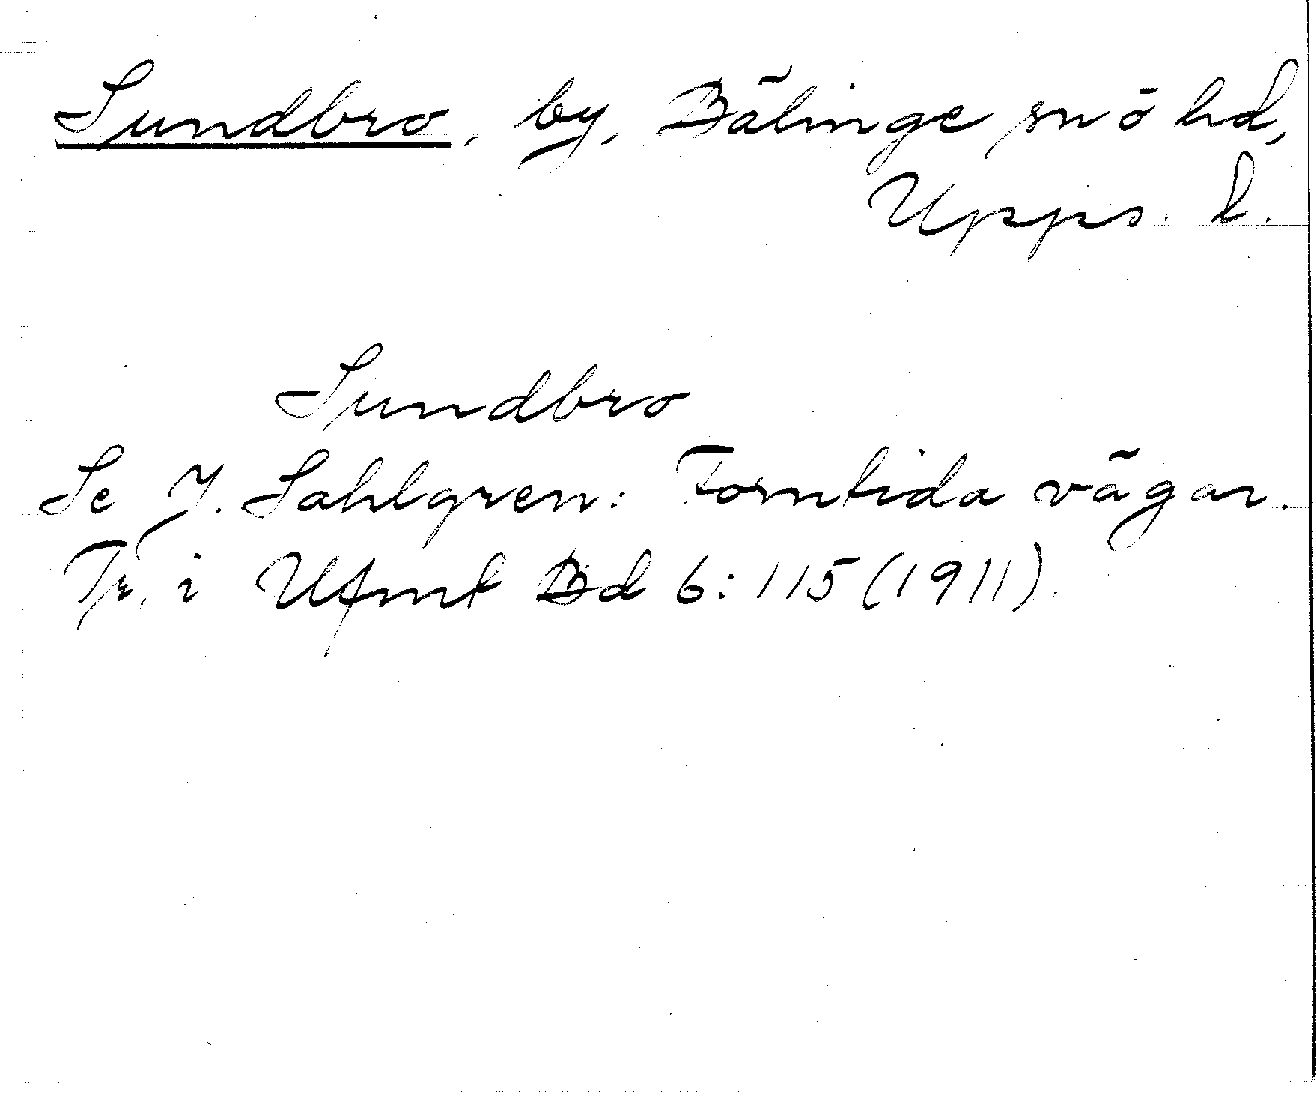 Sundbro, by, Bälinge sn ö hd,
Upps. l.
Sundbro
Se J. Sahlgren: Forntida vägar.
Tr. i Ufmt Bd 6: 115 (1911).